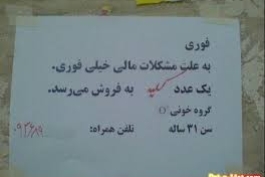 فوری
به علت مشکلات مالی خیلی فوری.
یک عدد کلیه به فروش می‌رسد.
گروه خونی O
سن ۳۱ ساله تلفن همراه: